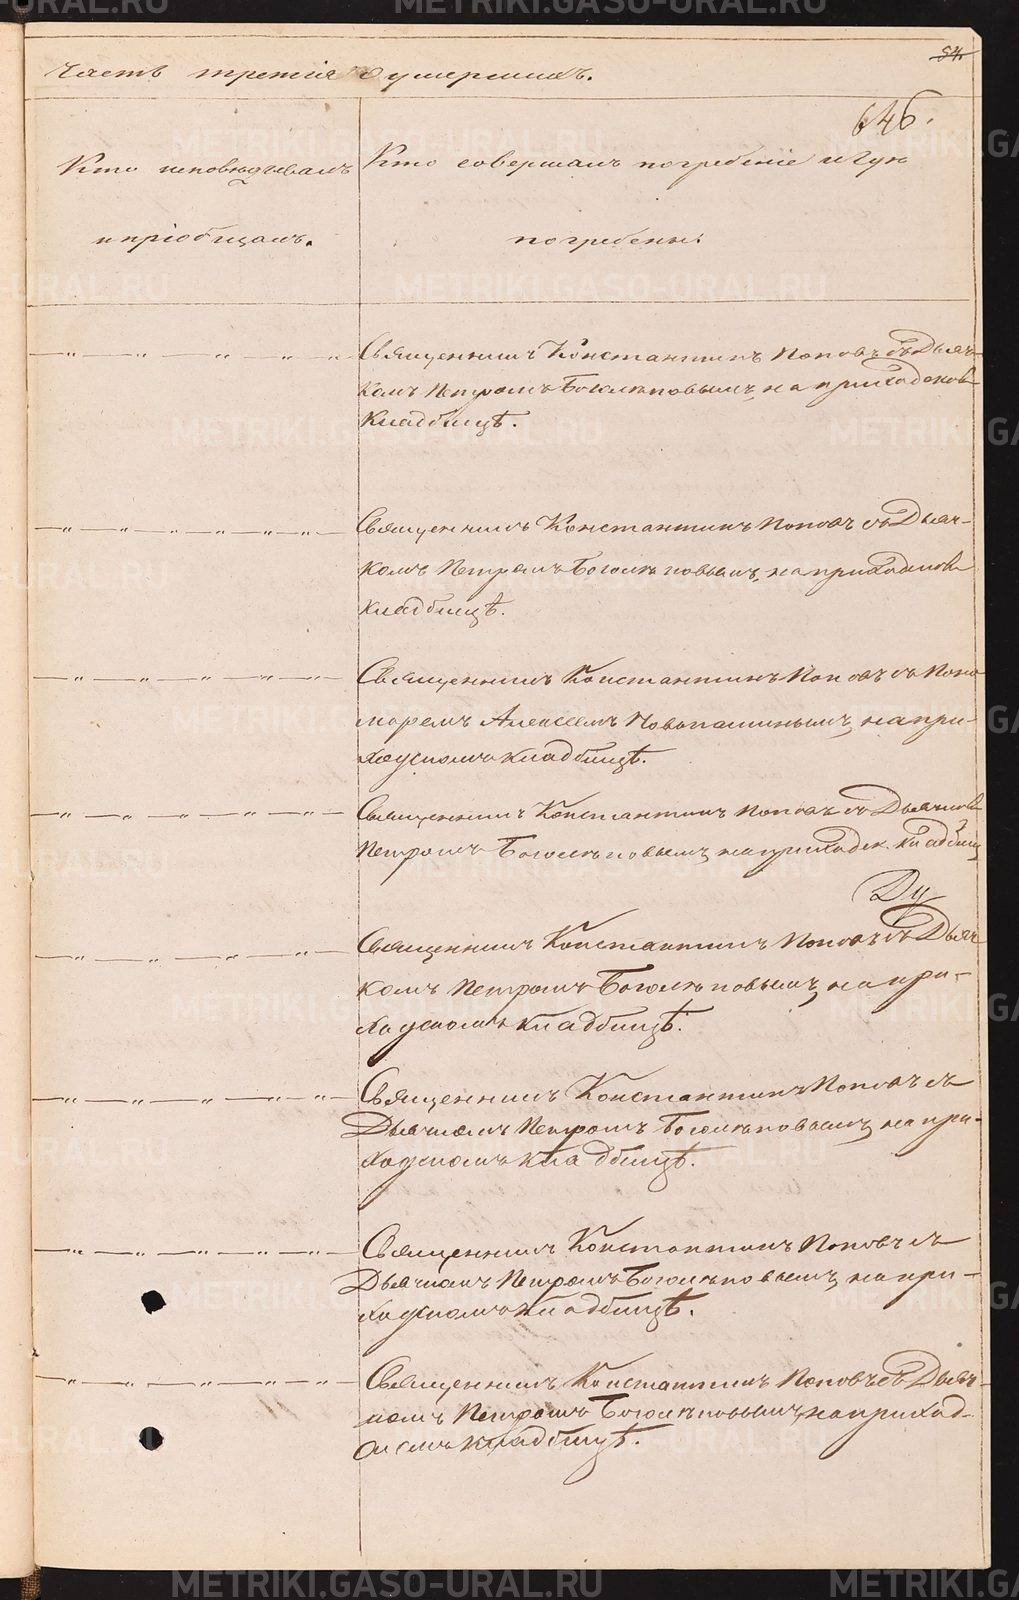 54.
Часть третія о умершихъ.
646.
Кто исповѣдывалъ
и пріобщалъ.
Кто совершалъ погребеніе и гдѣ
погребены.
Священникъ Константинъ Поповъ съ Дьяч-
комъ Петромъ Боголѣповымъ, на приходском
Кладбищѣ.
Священникъ Константинъ Поповъ съ Дьяч-
комъ Петромъ Боголѣповымъ, на приходском
кладбищѣ.
Священникъ Константинъ Поповъ съ Поно
маремъ Алексеемъ на при-
ходскомъ кладбищѣ.
Священникъ Константинъ Поповъ съ Дьячком
Петромъ Боголѣповымъ, на приходск. кладбищ
Священникъ Константинъ Поповъ съ Дьяч
комъ Петромъ Боголѣповымъ, на при-
ходскомъ кладбищѣ.
Священникъ Константинъ Поповъ съ
Дьячкомъ Петромъ Боголѣповымъ, на при-
ходскомъ кладбищѣ.
Священникъ Константинъ Поповъ съ
Дьячкомъ Петромъ Боголѣповымъ, на при-
ходскомъ кладбищѣ.
Священникъ Константинъ Поповъ съ Дьяч-
комъ Петромъ Боголѣповымъ, на приход-
скомъ кладбищѣ.
METRIKI.GASO-URAL.RU